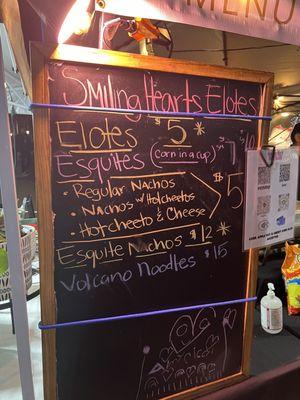 MENU
Smiling Hearts Elotes
Elotes $5
Esquites (corn in a cup)
• Regular Nachos
• Nachos w/ Hotcheetos $5
• Hotcheeto & Cheese
Esquite Nachos $12
Volcano Noodles $15